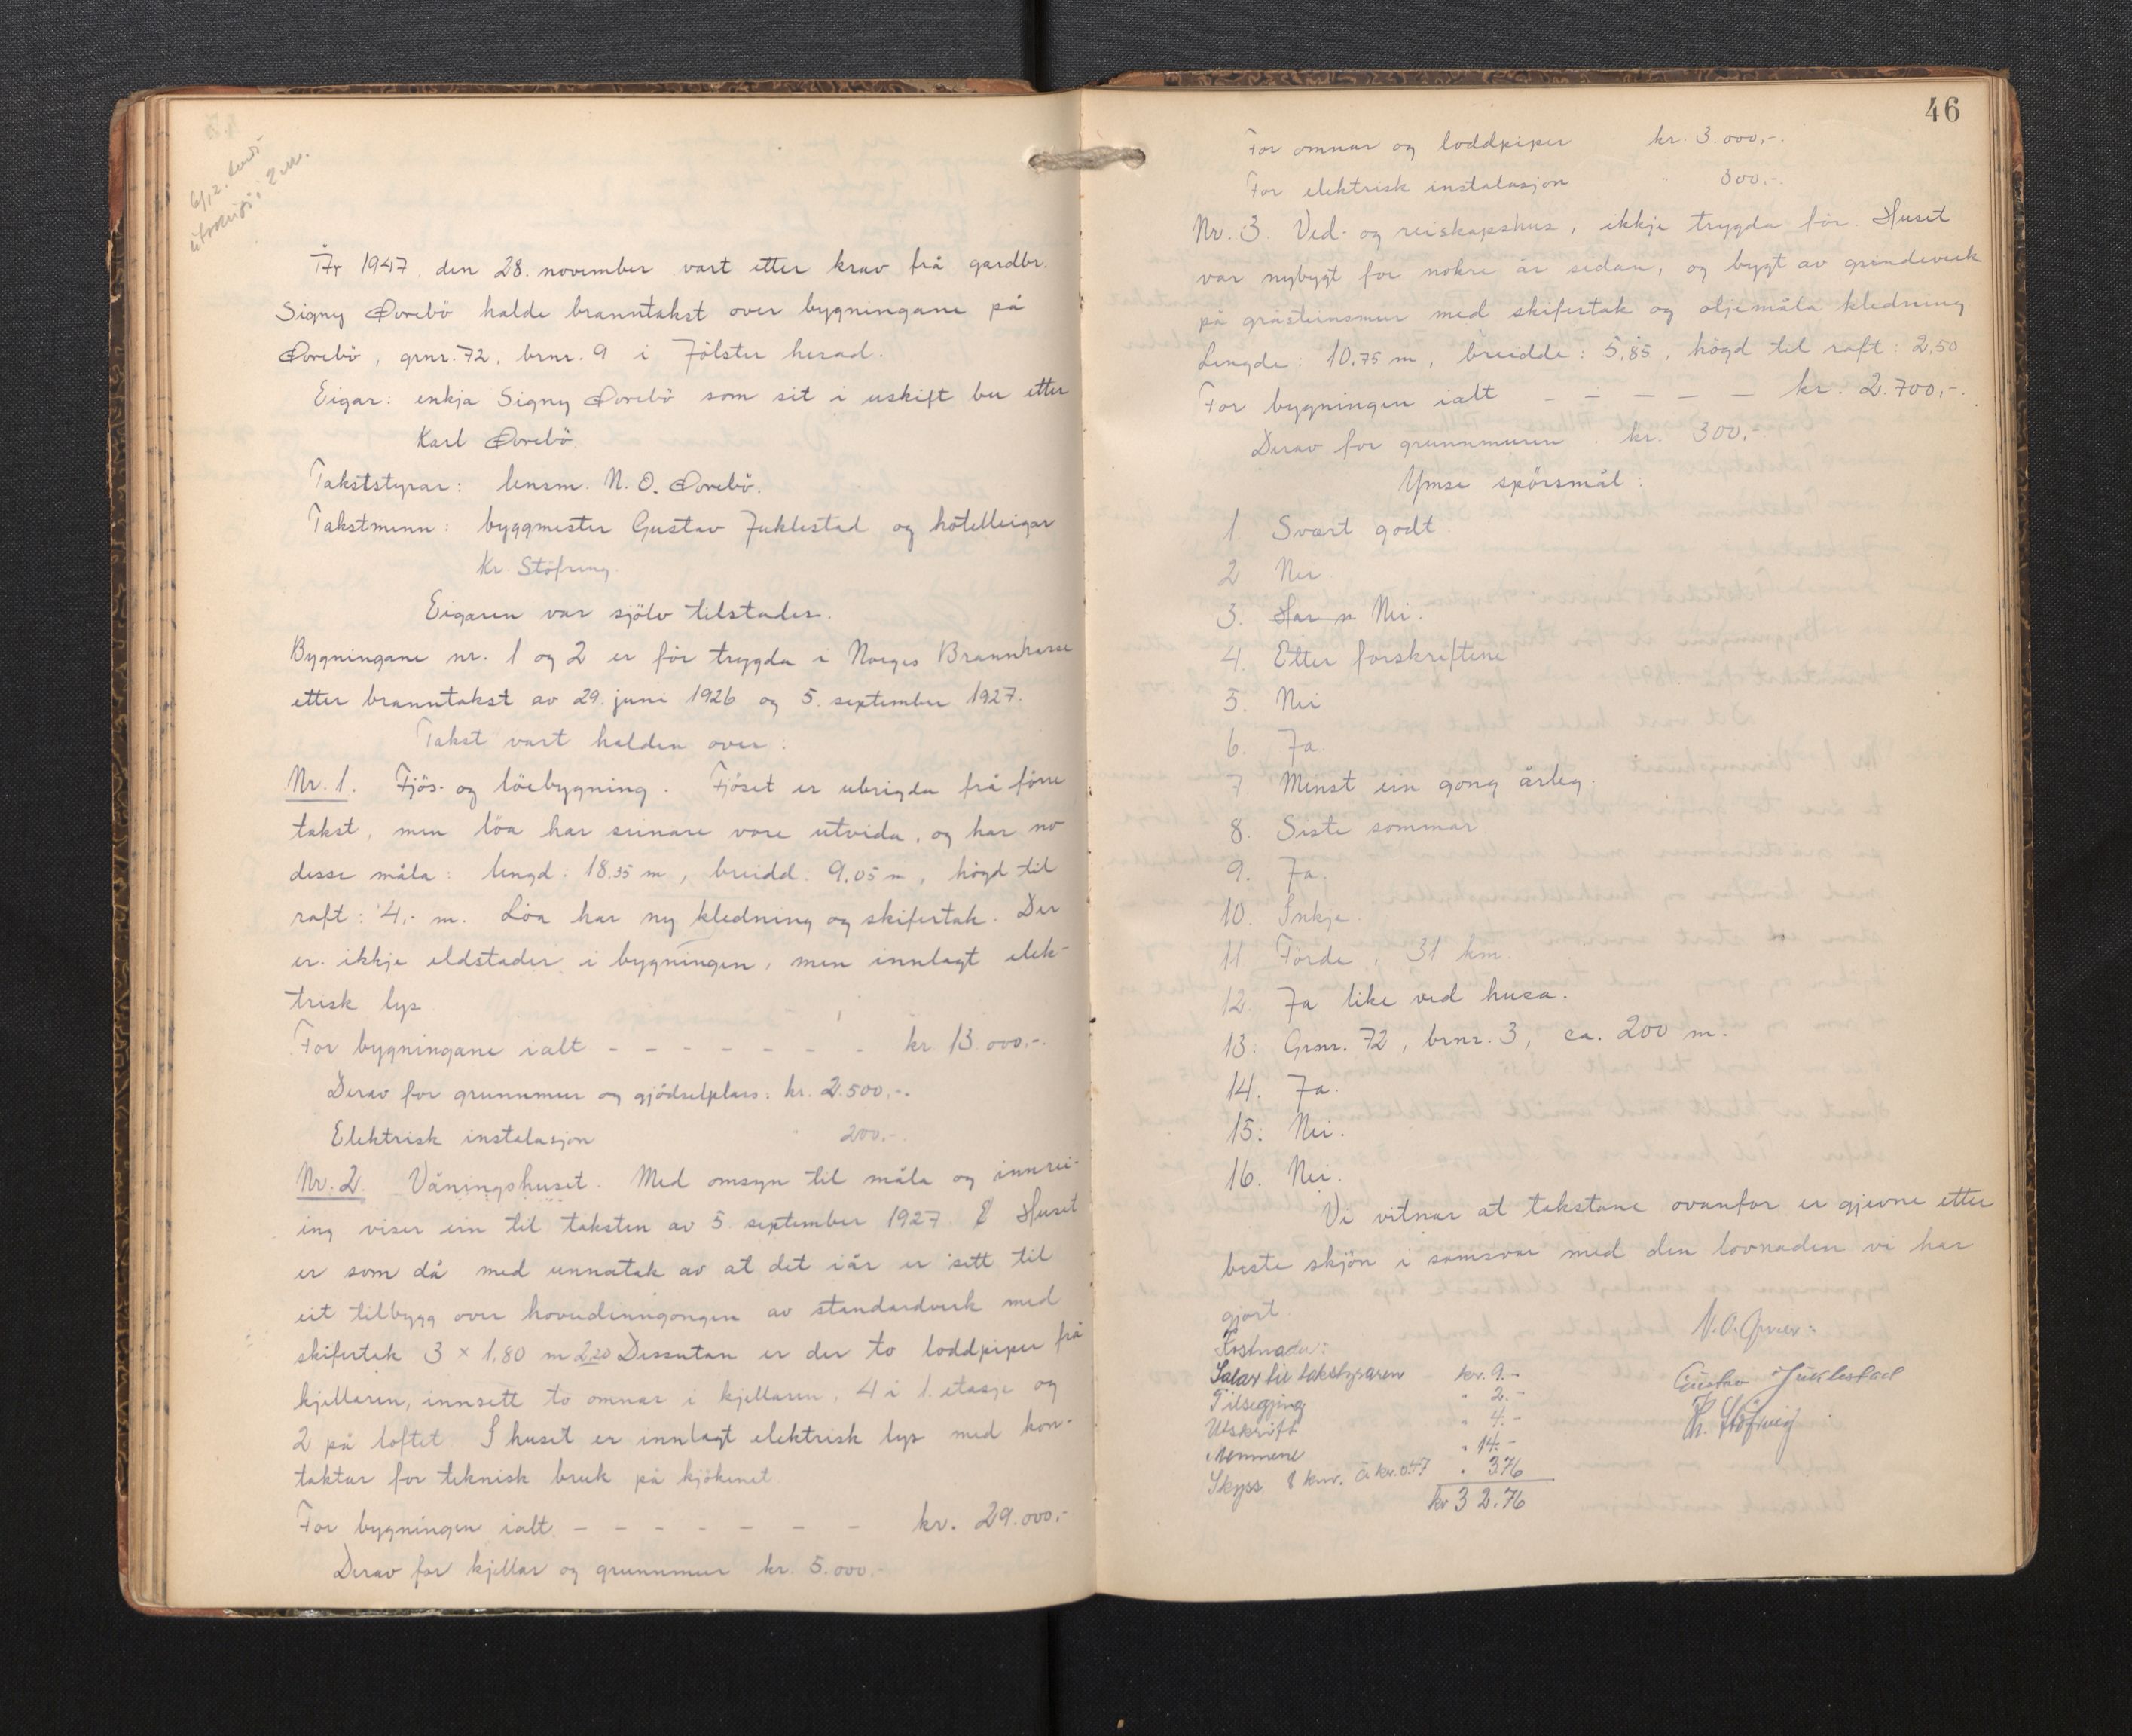 6/12. sendt
utskrift i 2 eks.
År 1947, den 28. november vart etter krav frå gardbr.
Signy Øvrebö halde branntakst over bygningane på
Øvrebö, grnr. 72, brnr. 9 i Jölster herad.
Eigar: enkja Signy Øvrebö som sit i uskift bu etter
Karl Øvrebö.
Takststyrar: lensm. N. O. Øvrebö.
Takstmenn: byggmester Gustav Juklestad og hotelleigar
Kr. Stöfring.
Eigaren var sjölv tilstades.
Bygningane nr. 1 og 2 er för trygda i Norges Brannkasse
etter branntakst av 29. juni 1926 og 5. september 1927.
Takst vart halden over:
Nr. 1. Fjös- og löebygning. Fjöset er ubrigda frå förre
takst, men löa har seinare vore utvida, og har no
desse måla: lengd: 18.35 m, breidd: 9.05 m, högd til
raft: 4,- m. Löa har ny kledning og skifertak. Der
er ikkje eldstader i bygningen, men innlagt elek-
trisk lys
For bygningane ialt - - - - - - - kr 13.000,-.
Derav for grunnmur og gjödselplass: kr. 2.500,-.
Elektrisk instalasjon " 200,-.
Nr. 2. Våningshuset. Med omsyn til måla og innrei-
ing viser ein til taksten av 5. september 1927. Huset
er som då med unnatak av at det iår er sett til
eit tilbygg over hovudinngongen av standardverk med
skifertak 3 × 1,80 m 2,20 Dessutan er der to loddpiper frå
kjellaren, innsett to omnar i kjellaren, 4 i 1. etasje og
2 på loftet. I huset er innlagt elektrisk lys med kon-
taktar for teknisk bruk på kjökenet
For bygningen ialt. - - - - - - - kr. 29.000,-
Derav for kjellar og grunnmur kr. 5.000.-
46
For omnar og loddpiper kr. 3.000,-.
For elektrisk instalasjon " 300,-.
Nr. 3. Ved- og reiskapshus, ikkje trygda för. Huset
var nybygt for nokre år sidan, og bygt av grindverk
på gråsteinsmur med skifertak og oljemåla kledning
Lengde: 10,75 m, breidde: 5,85, högd til raft: 2,50
For bygningen ialt - - - - - kr. 2.700,-.
Derav for grunnmuren kr. 300,-.
Ymse spörsmål:
1 Svært godt
2 Nei
3. Har n Nei.
4. Etter forskriftene
5. Nei
6. Ja.
7 Minst ein gong årleg.
8. Siste sommar
9. Ja.
10. Inkje.
11 Förde, 31 km.
12. Ja like ved husa.
13. Grnr. 72, brnr. 3, ca. 200 m.
14. Ja.
15. Nei.
16. Nei.
Vi vitnar at takstane ovanfor er gjevne etter
beste skjön i samsvar med den lovnaden vi har
gjort
N. O. Øvrebö
Kostnader:
Salar til takstyraren kr. 9.-
Gustav Juklestad
Tilsegjing " 2.-
Kr. Stöfring
Utskrift " 4.-
Mennene " 14.-
Skyss 8 km. à kr. 0.47 " 3.76
kr 32.76